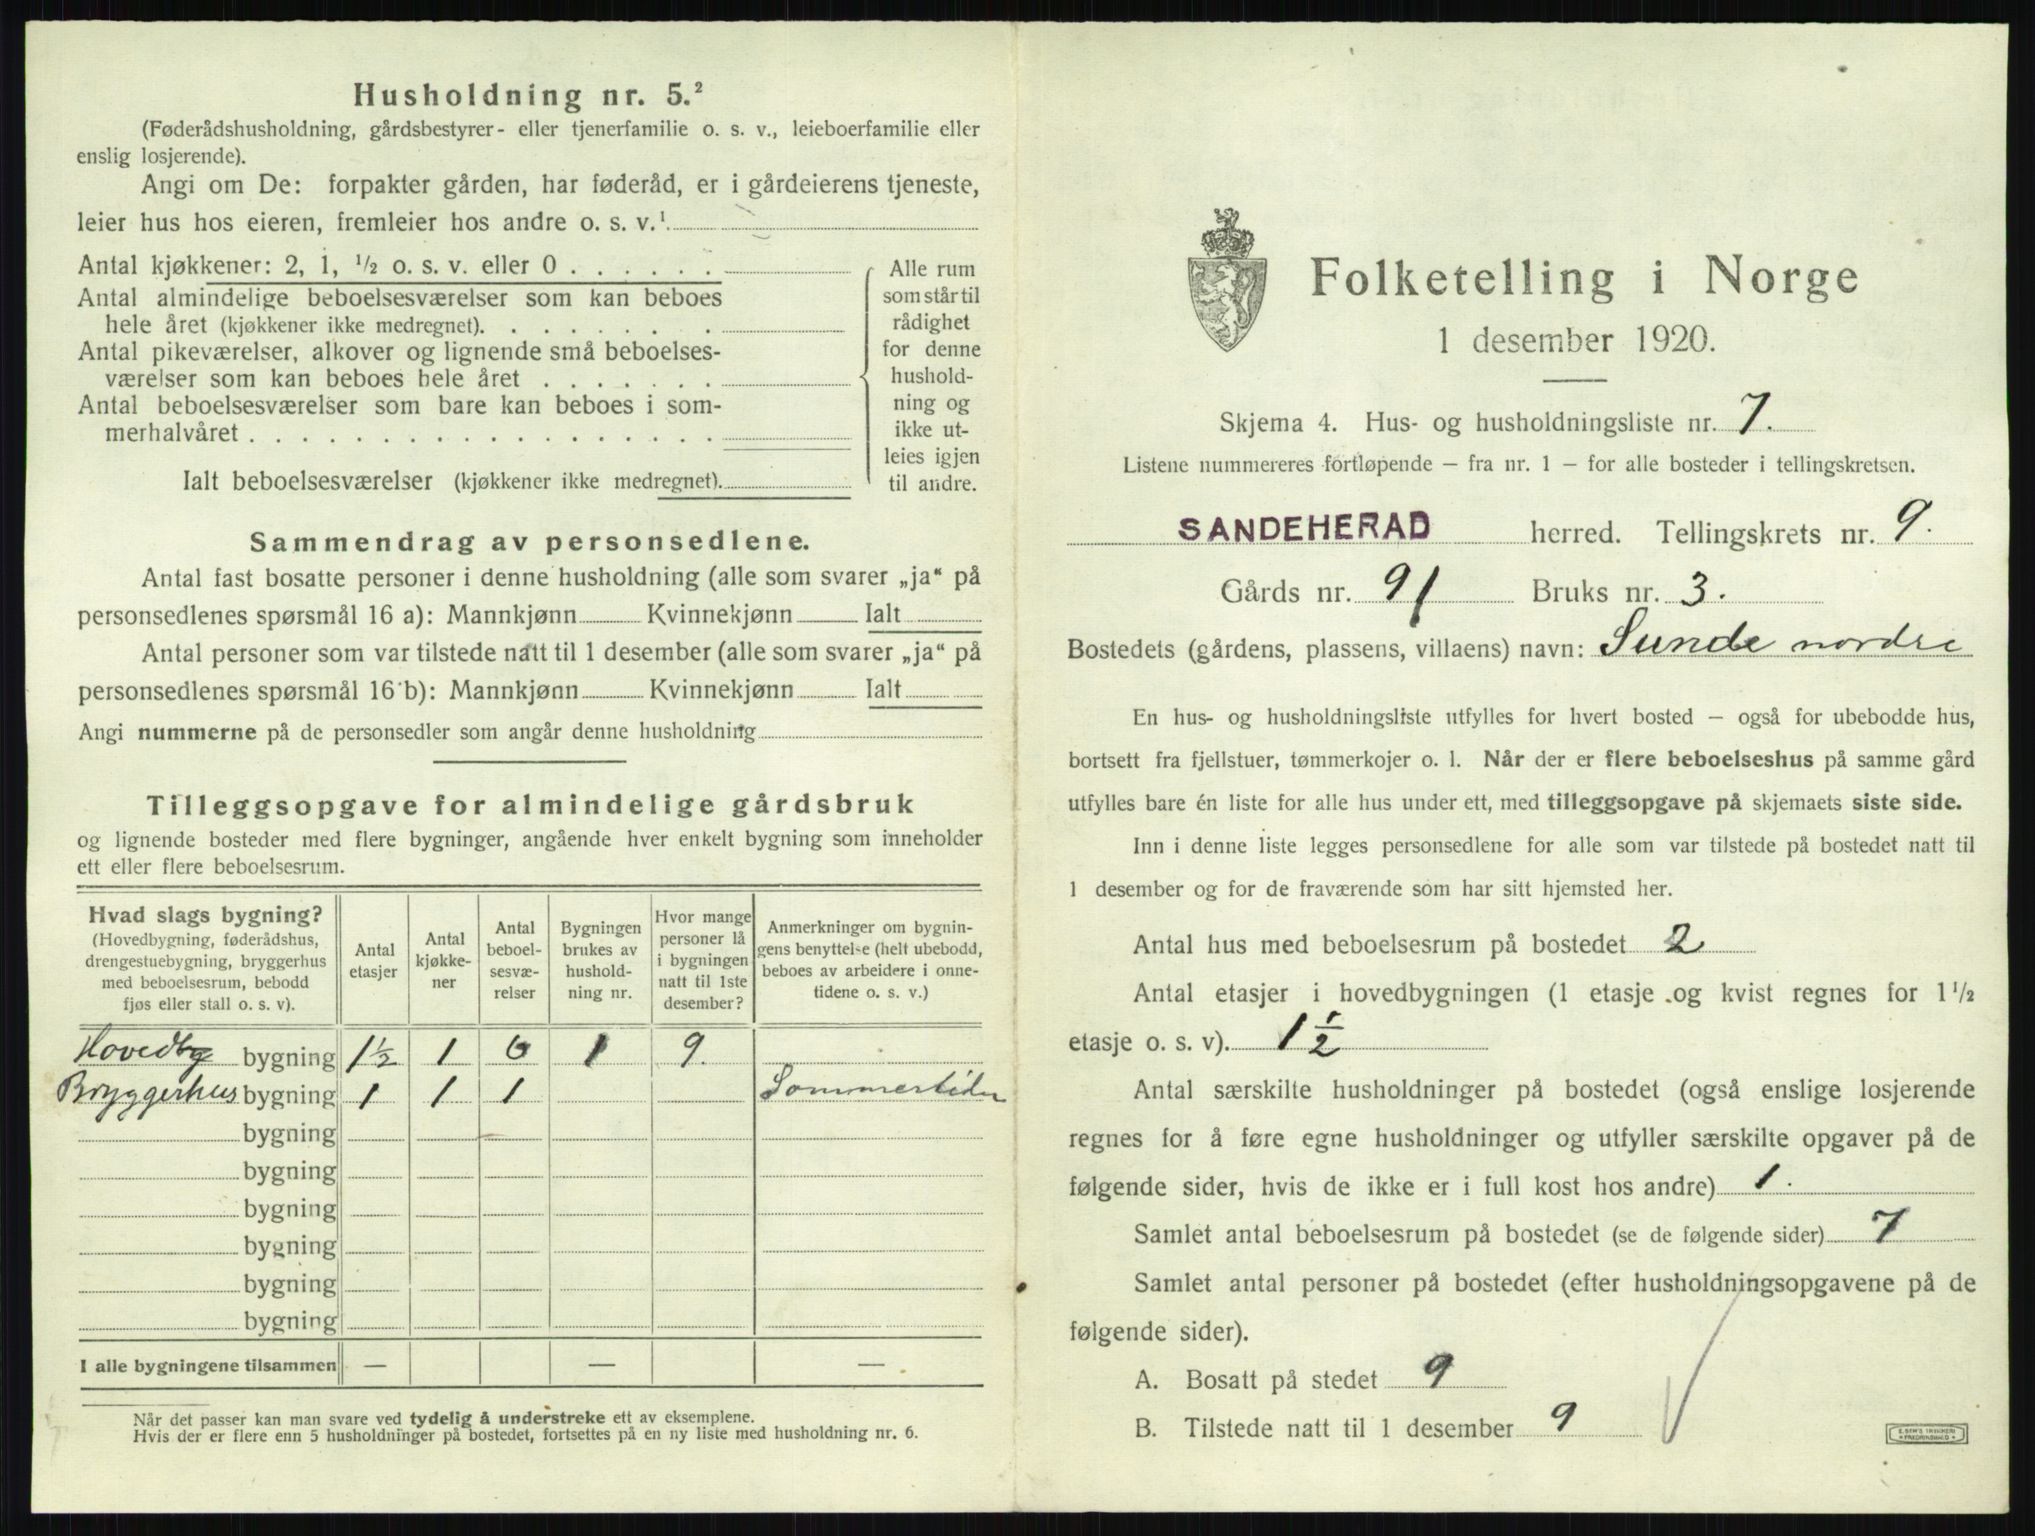 Husholdning nr. 5.²
(Føderådshusholdning, gårdsbestyrer- eller tjenerfamilie o. s. v., leieboerfamilie eller
enslig losjerende).
Angi om De: forpakter gården, har føderåd, er i gårdeierens tjeneste,
leier hus hos eieren, fremleier hos andre o. s. v.¹
Antal kjøkkener: 2, 1, ½ o. s. v. eller 0 . . . . . .
Antal almindelige beboelsesværelser som kan beboes
hele året (kjøkkener ikke medregnet). . . . . . . .
Antal pikeværelser, alkover og lignende små beboelses-
værelser som kan beboes hele året . . . . . . .
Antal beboelsesværelser som bare kan beboes i som-
merhalvåret . . . . . . . . . . . . . . . . . .
Ialt beboelsesværelser (kjøkkener ikke medregnet).
Alle rum
som står til
rådighet
for denne
hushold-
ning og
ikke ut-
leies igjen
til andre.
Sammendrag av personsedlene.
Antal fast bosatte personer i denne husholdning (alle som svarer „ja“ på
personsedlenes spørsmål 16 a): Mannkjønn Kvinnekjønn Ialt
Antal personer som var tilstede natt til 1 desember (alle som svarer „ja“ på
personsedlenes spørsmål 16 b): Mannkjønn Kvinnekjønn Ialt
Angi nummerne på de personsedler som angår denne husholdning
Tilleggsopgave for almindelige gårdsbruk
og lignende bosteder med flere bygninger, angående hver enkelt bygning som inneholder
ett eller flere beboelsesrum.
Hvad slags bygning?
(Hovedbygning, føderådshus,
drengestuebygning, bryggerhus
med beboelsesrum, bebodd
fjøs eller stall o. s. v).
Antal
etasjer
Antal
kjøkke-
ner
Antal
beboel-
sesvæ-
relser
Bygningen
brukes av
hushold-
ning nr.
Hvor mange
personer lå
i bygningen
natt til 1ste
desember?
Anmerkninger om bygnin-
gens benyttelse (helt ubebodd,
beboes av arbeidere i onne-
tidene o. s. v.)
Hovedby bygning 1½ 1 6 1 9.
Bryggerhus bygning 1 1 1 Sommertiden
bygning
bygning
bygning
bygning
bygning
bygning
I alle bygningene tilsammen — — —
Når det passer kan man svare ved tydelig å understreke ett av eksemplene.
Hvis der er flere enn 5 husholdninger på bostedet, fortsettes på en ny liste med husholdning nr. 6.
Folketelling i Norge
1 desember 1920.
Skjema 4. Hus- og husholdningsliste nr. 7.
Listene nummereres fortløpende – fra nr. 1 – for alle bosteder i tellingskretsen.
SANDEHERAD herred. Tellingskrets nr. 9.
Gårds nr. 91 Bruks nr. 3.
Bostedets (gårdens, plassens, villaens) navn: Sunde nordre
En hus- og husholdningsliste utfylles for hvert bosted – også for ubebodde hus,
bortsett fra fjellstuer, tømmerkojer o. l. Når der er flere beboelseshus på samme gård
utfylles bare én liste for alle hus under ett, med tilleggsopgave på skjemaets siste side.
Inn i denne liste legges personsedlene for alle som var tilstede på bostedet natt til
1 desember og for de fraværende som har sitt hjemsted her.
Antal hus med beboelsesrum på bostedet 2
Antal etasjer i hovedbygningen (1 etasje og kvist regnes for 1½
etasje o. s. v). 1½
Antal særskilte husholdninger på bostedet (også enslige losjerende
regnes for å føre egne husholdninger og utfyller særskilte opgaver på de
følgende sider, hvis de ikke er i full kost hos andre) 1.
Samlet antal beboelsesrum på bostedet (se de følgende sider) 7
Samlet antal personer på bostedet (efter husholdningsopgavene på de
følgende sider).
A. Bosatt på stedet 9
B. Tilstede natt til 1 desember 9